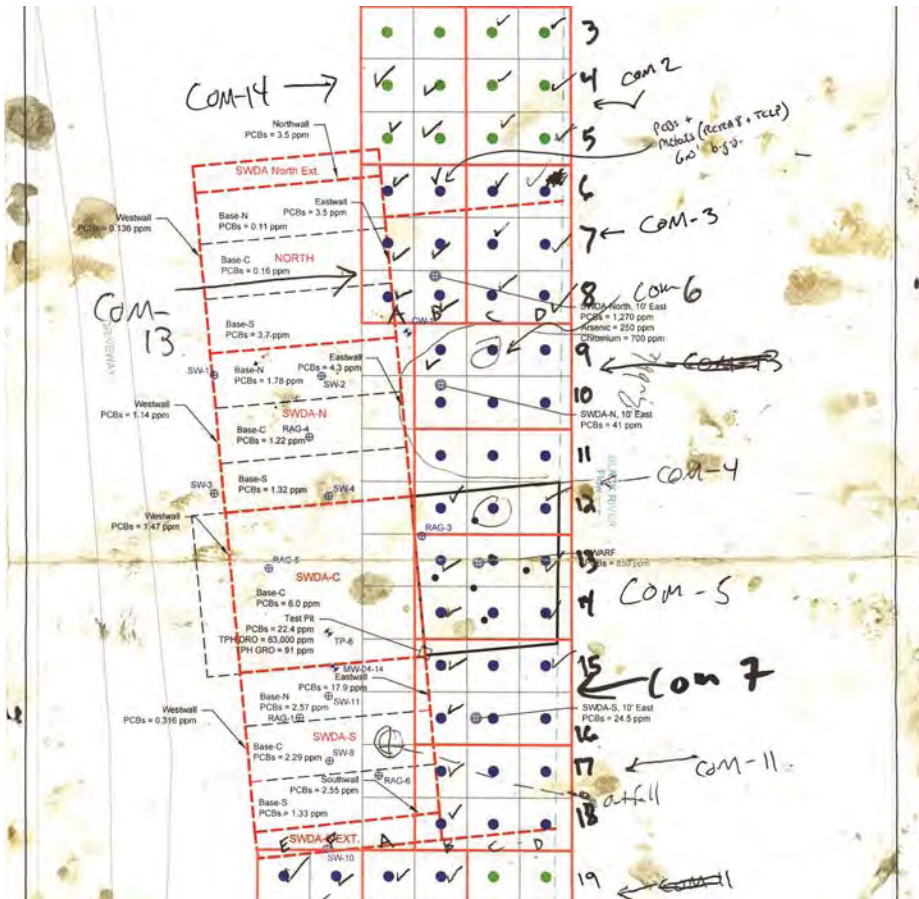 3
COM-14
4
COM 2
Northwall
PCBs = 3.5 ppm
5
PCBs +
Metals (RCRA 8 + TCLP)
SWDA North Ext.
6
Eastwall
PCBs = 3.5 ppm
Westwall
PCBs = 0.136 ppm
Base-N
PCBs = 0.11 ppm
7
COM-3
Base-C
PCBs = 0.16 ppm
NORTH
COM-
13
8
COM 6
A
B
C
D
SWDA-North, 10' East
PCBs = 1,270 ppm
Arsenic = 250 ppm
Chromium = 700 ppm
Base-S
PCBs = 3.7 ppm
DRIVEWAY
9
Eastwall
PCBs = 4.3 ppm
SW-1
Base-N
PCBs = 1.78 ppm
SW-2
10
Westwall
PCBs = 1.14 ppm
SWDA-N
SWDA-N, 10' East
PCBs = 41 ppm
Base-C
PCBs = 1.22 ppm
RAG-4
11
COM-4
Base-S
PCBs = 1.32 ppm
SW-3
SW-4
12
Westwall
PCBs = 1.47 ppm
RAG-3
13
RAG-5
SWDA-C
COM-5
Base-C
PCBs = 6.0 ppm
Test Pit
PCBs = 22.4 ppm
TPH DRO = 63,000 ppm
TPH GRO = 91 ppm
TP-6
15
MW-04-14
Eastwall
PCBs = 17.9 ppm
Com 7
Base-N
PCBs = 2.57 ppm
SW-11
RAG-1
SWDA-S, 10' East
PCBs = 24.5 ppm
Westwall
PCBs = 0.316 ppm
SWDA-S
16
Base-C
PCBs = 2.29 ppm
SW-8
17
COM-11
Southwall
PCBs = 2.55 ppm
RAG-6
outfall
Base-S
PCBs = 1.33 ppm
18
E
F
A
B
C
D
SW-10
19